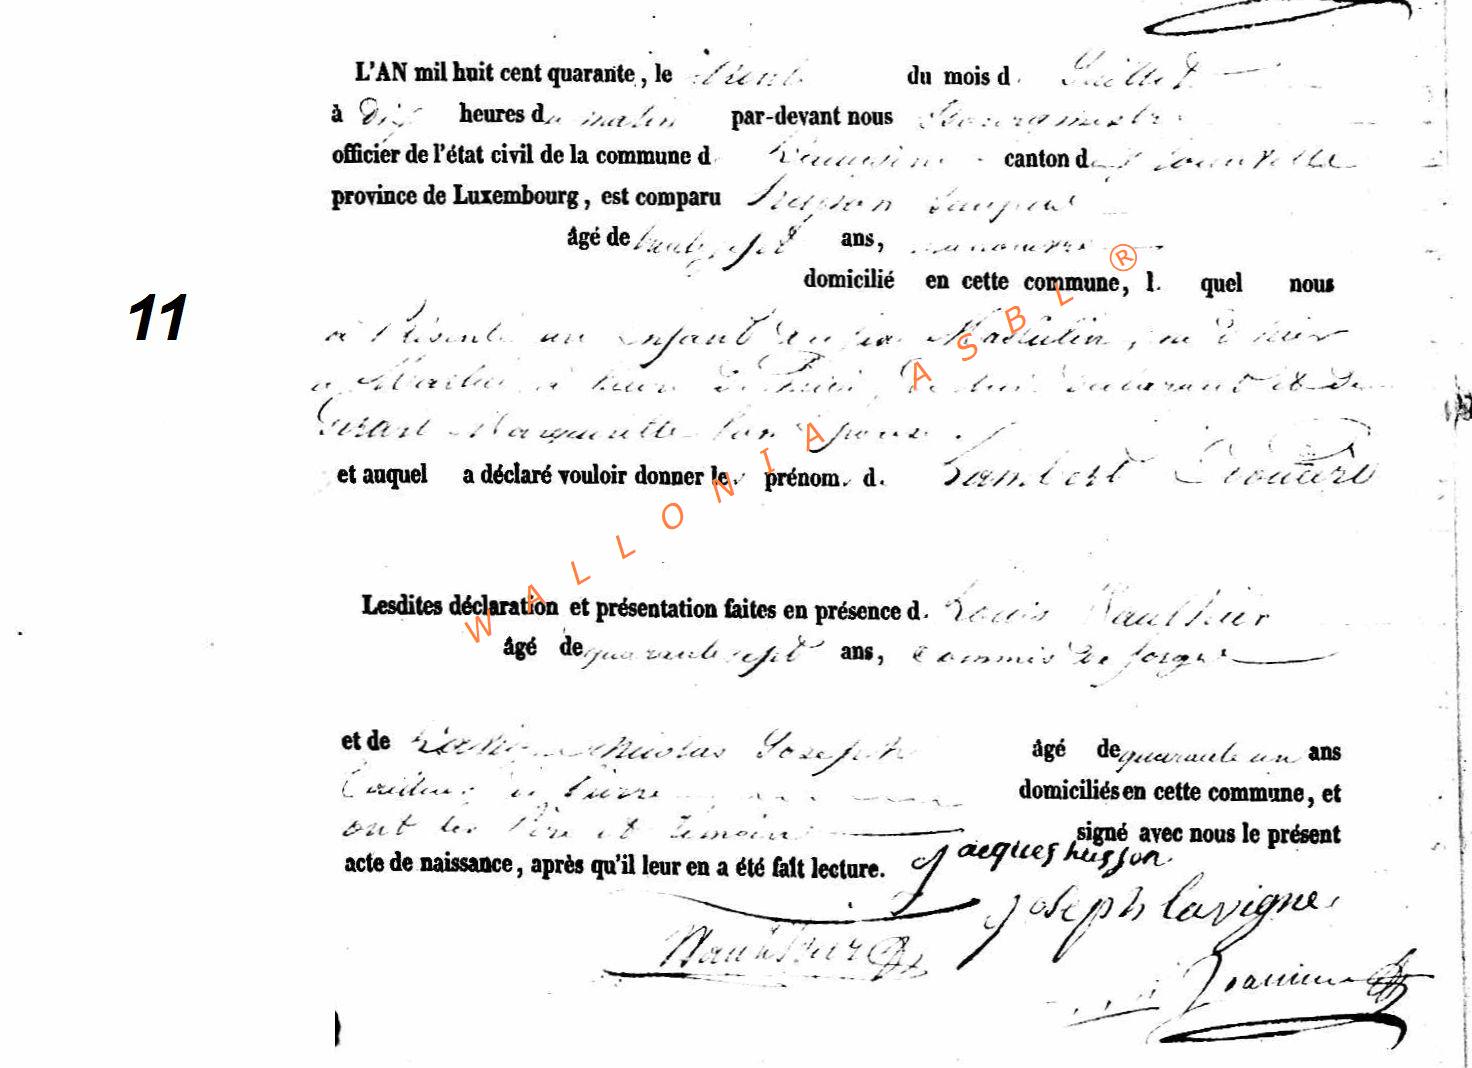 L'AN mil huit cent quarante, le trente du mois d. Juillet
à Dix heures du matin par-devant nous Bourgmestre
officier de l'état civil de la commune d. canton de
province de Luxembourg, est comparu husson Jacques
âgé de trente sept ans, manoeuvre
domicilié en cette commune, l. quel nous
11
a Présenté un enfant du sexe Masculin, né d'hier
à heure de lui déclarant et de
Marguerite son épouse.
et auquel a déclaré vouloir donner les prénom. d. Lambert Edouard
Lesdites déclaration et présentation faites en présence d. Louis Wauthier
âgé de quarante sept ans, commis de forges
et de Nicolas Joseph âgé de quarante un ans
de Pierre domiciliés en cette commune, et
ont les Père et témoins signé avec nous le présent
acte de naissance, après qu'il leur en a été fait lecture. jacques husson
joseph lavigne
Wauthier
WALLONIA ASBL ®